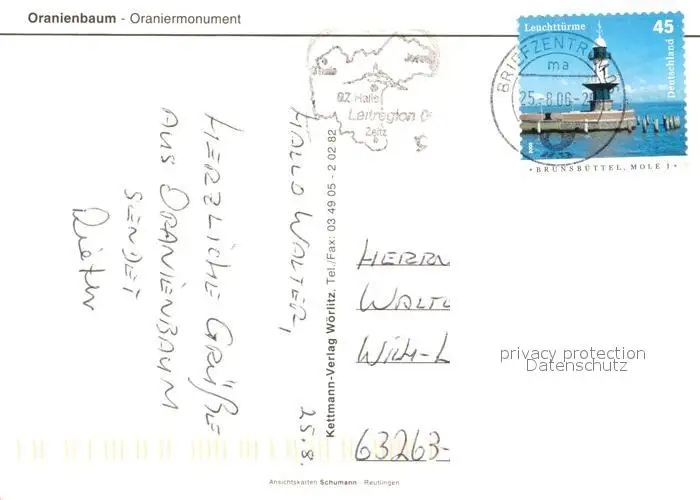 Oranienbaum - Oraniermonument
Leuchttürme 45
Deutschland
BRUNSBÜTTEL, MOLE 1
BRIEFZENTR
ma
25.-8.06-2
BZ Halle
Leitregion 0
Zeitz
HALLO WALTER,
25.8.
HERZLICHE GRÜßE
AUS ORANIENBAUM
SENDET
Dieter
Kettmann-Verlag Wörlitz, Tel./Fax: 03 49 05 - 2 02 82
HERRN
WALT
WILH-L
63263-
privacy protection
Datenschutz
Ansichtskarten Schumann · Reutlingen